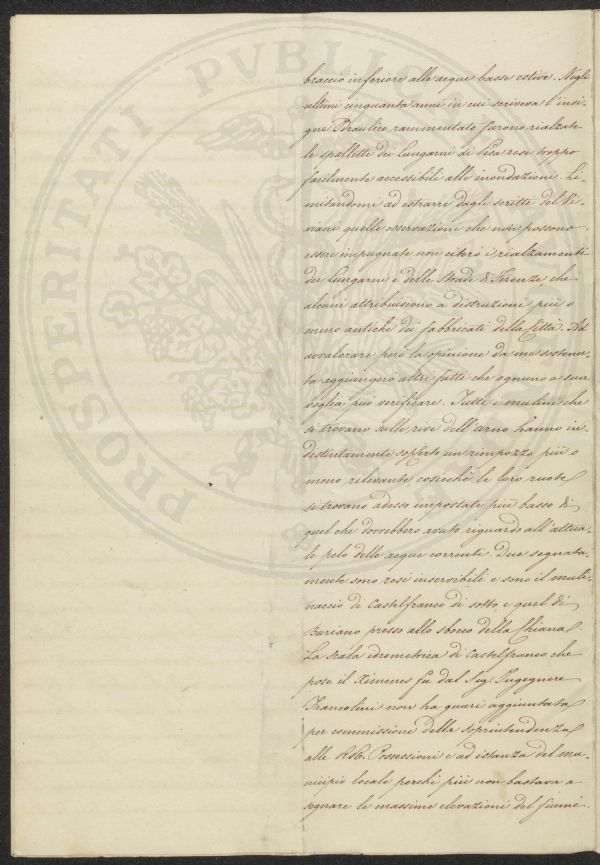 braccio inferiore alle acque basse estive. Negli
ultimi cinquanta anni in cui scriveva l'insi-
gne Idraulico rammentato furono rialzate
le spallette dei Lungarni di Pisa rese troppo
facilmente accessibili alle inondazioni. Li-
mitandomi ad estrarre dagli scritti del Vi-
viani quelle osservazioni che non possono
essere impugnate non citerò i rialzamenti
dei Lungarni e delle strade di Firenze, che
alcuni attribuiscono a distruzioni più o
meno antiche dei fabbricati della Città. Ad
avvalorare però la opinione da me sostenu-
ta aggiungerò altri fatti che ognuno a sua
voglia può verificare. Tutti i mulini che
si trovano sulle rive dell'arno hanno in-
distintamente sofferto un rimpozzo più o
meno rilevante, cosicchè le loro ruote
si trovano adesso impostate più basso di
quel che dovrebbero avuto riguardo all'attua-
le pelo delle acque correnti. Due segnata-
mente sono resi inservibili e sono il muli-
naccio di Castelfranco di sotto, e quel di
Buriano presso allo sbocco della Chiana
La scala idrometrica di Castelfranco che
pose il Ximenes fu dal Sig. Ingegnere
Francolini non ha guari aggiuntata
per commissione della soprintendenza
alle RR. Possessioni e ad istanza del mu-
nicipio locale perchè più non bastava a
segnare le massime elevazioni del fiume.
PROSPERITATI PVBLIC